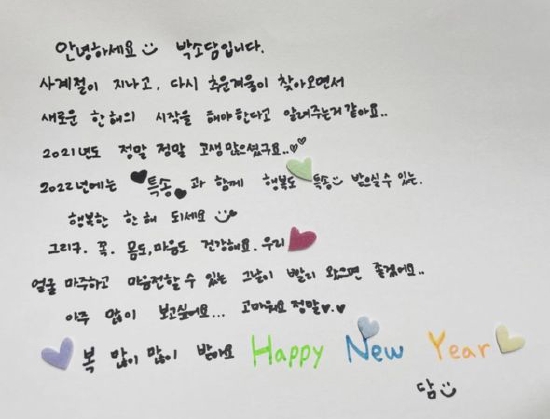 안녕하세요 박소담입니다.
사계절이 지나고, 다시 추운겨울이 찾아오면서
새로운 한 해의 시작을 해야한다고 알려주는거 같아요..
2021년도 정말 정말 고생 많으셨구요..♡♥
2022년에는 ♥특송♥ 과 함께 행복도 특송 받으실 수 있는.
행복한 한 해 되세요
그리구. 꼭. 몸도, 마음도 건강해요. 우리
얼굴 마주하고 마음전할 수 있는 그날이 빨리 왔으면 좋겠어요..
아주 많이 보고싶어요... 고마워요 정말♥.♥
복 많이 많이 받아요 Happy New Year
담